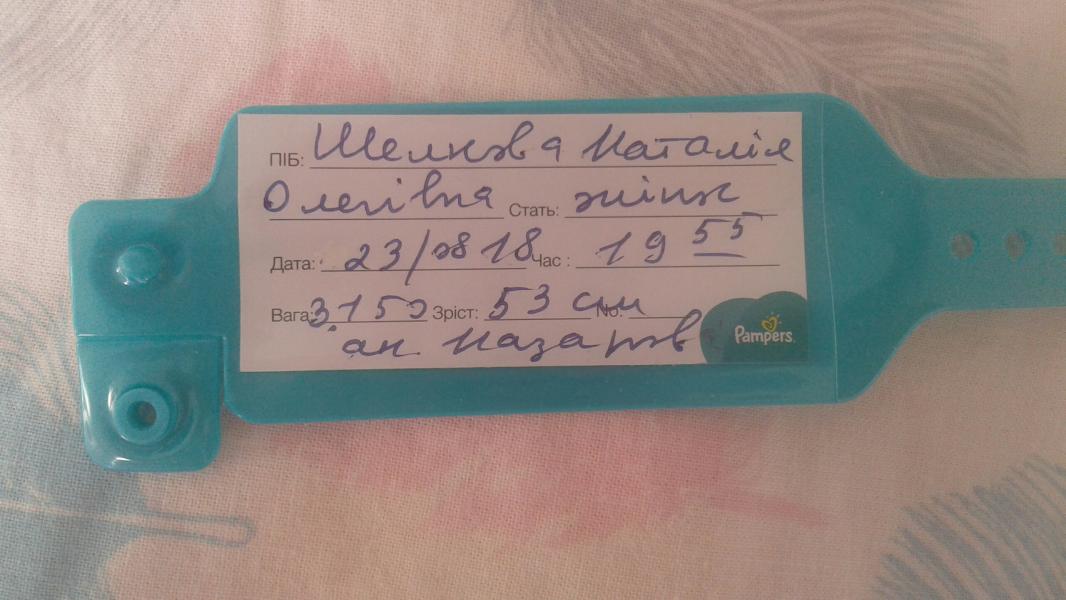 ПІБ: Шелкова Наталія
Олегівна Стать: жінж
Дата: 23/ 18 Час : 19 55
Вага: 3.150 Зріст: 53 см No:
ак. Назаров
Pampers